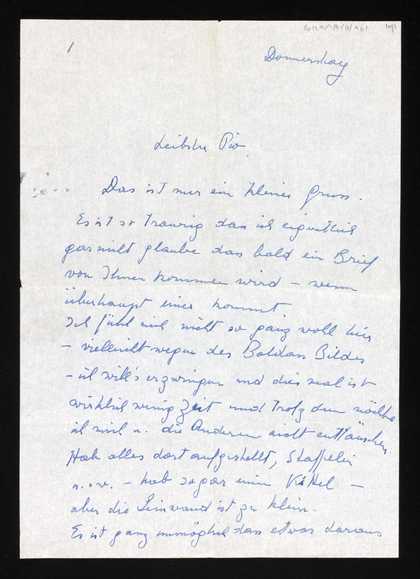 1
Donnerstag
Liebste Pio.
Das ist nur ein kleiner Gruss.
Es ist so traurig das ich eigentlich
gar nicht glaube das bald ein Brief
von Ihnen kommen wird – wenn
überhaupt einer kommt.
Ich fühl mich nicht so ganz woll hier
– vielleicht wegen des Bildes
– ich will's erzwingen und dies mal ist
wirklich wenig Zeit und Trotzdem möchte
ich mich u. die Anderen nicht enttäuschen.
Hab alles dort aufgestellt, Staffelei
u.s.w. – hab sogar einen Kittel –
aber die Leinwand ist zu klein.
Es ist ganz unmöglich dass etwas daraus